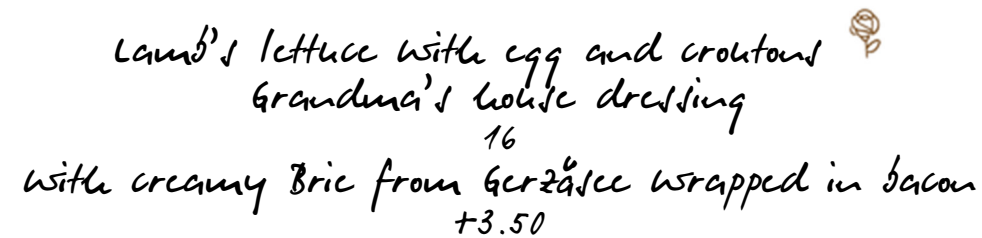 Lamb's lettuce with egg and croutons
Grandma's house dressing
16
with creamy Brie from Gerzäsee wrapped in bacon
+3.50